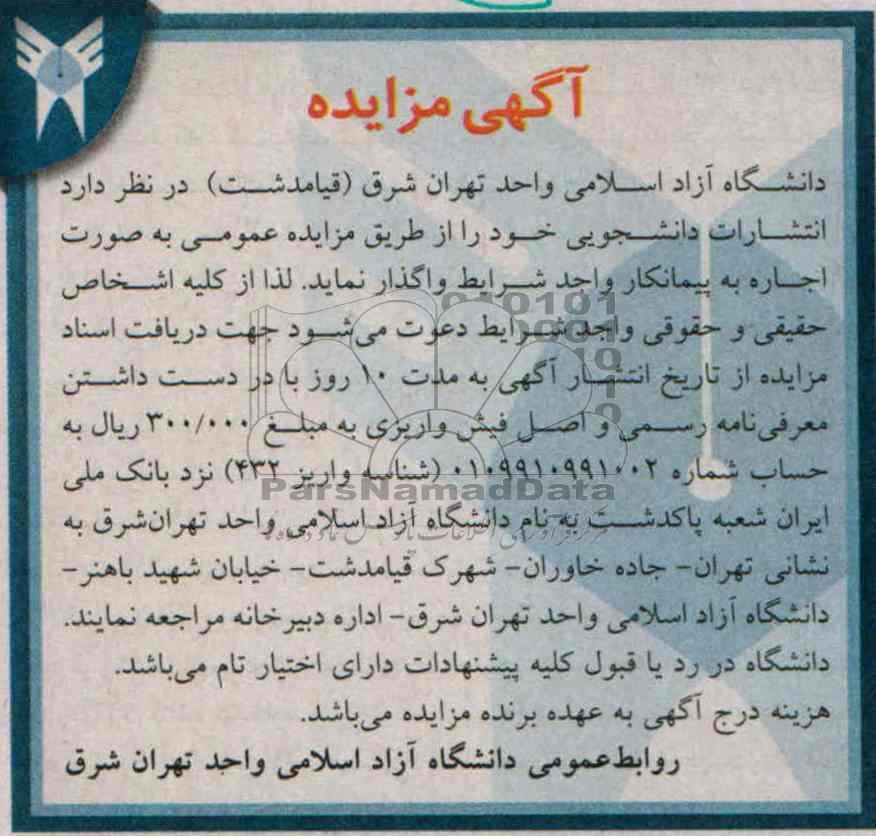 آگهی مزایده
دانشگاه آزاد اسلامی واحد تهران شرق (قیامدشت) در نظر دارد
انتشارات دانشجویی خود را از طریق مزایده عمومی به صورت
اجاره به پیمانکار واجد شرایط واگذار نماید. لذا از کلیه اشخاص
حقیقی و حقوقی واجد شرایط دعوت می‌شود جهت دریافت اسناد
مزایده از تاریخ انتشار آگهی به مدت ۱۰ روز با در دست داشتن
معرفی‌نامه رسمی و اصل فیش واریزی به مبلغ ۳۰۰/۰۰۰ ریال به
حساب شماره ۰۱۰۹۹۱۰۹۹۱۰۰۲ (شناسه واریز ۴۳۲) نزد بانک ملی
ایران شعبه پاکدشت به نام دانشگاه آزاد اسلامی واحد تهران‌شرق به
نشانی تهران- جاده خاوران- شهرک قیامدشت- خیابان شهید باهنر-
دانشگاه آزاد اسلامی واحد تهران شرق- اداره دبیرخانه مراجعه نمایند.
دانشگاه در رد یا قبول کلیه پیشنهادات دارای اختیار تام می‌باشد.
هزینه درج آگهی به عهده برنده مزایده می‌باشد.
روابط‌عمومی دانشگاه آزاد اسلامی واحد تهران شرق
ParsNamadData